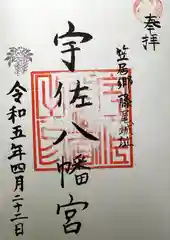 奉拝
笠居郷藤尾神社
宇佐八幡宮
令和五年四月二十二日